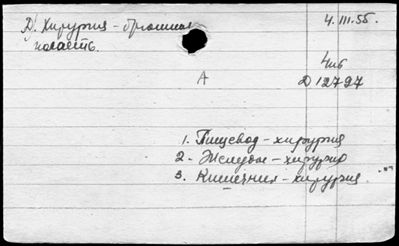 Д. Хирургия - брюшная 4.III.55.
полость.
Чив
А D 12797
1. Пищевод - хирургия
2 - Желудок - хирургия
3. Кишечник - хирургия